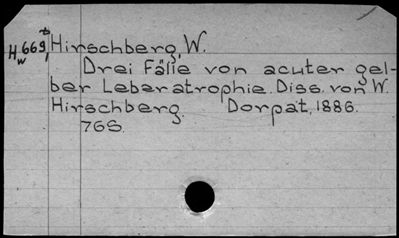 Hw 669 b/1 Hirschberg, W.
Drei Fälle von acuter gel-
ber Leberatrophie. Diss. von W.
Hirschberg. Dorpat, 1886.
76S.